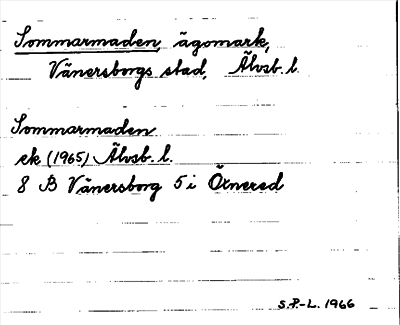 Sommarmaden, ägomark,
Vänersborgs stad, Älvsb. l.
Sommarmaden
ek (1965) Älvsb. l.
8 B Vänersborg 5 i Öxnered
S.P.-L. 1966